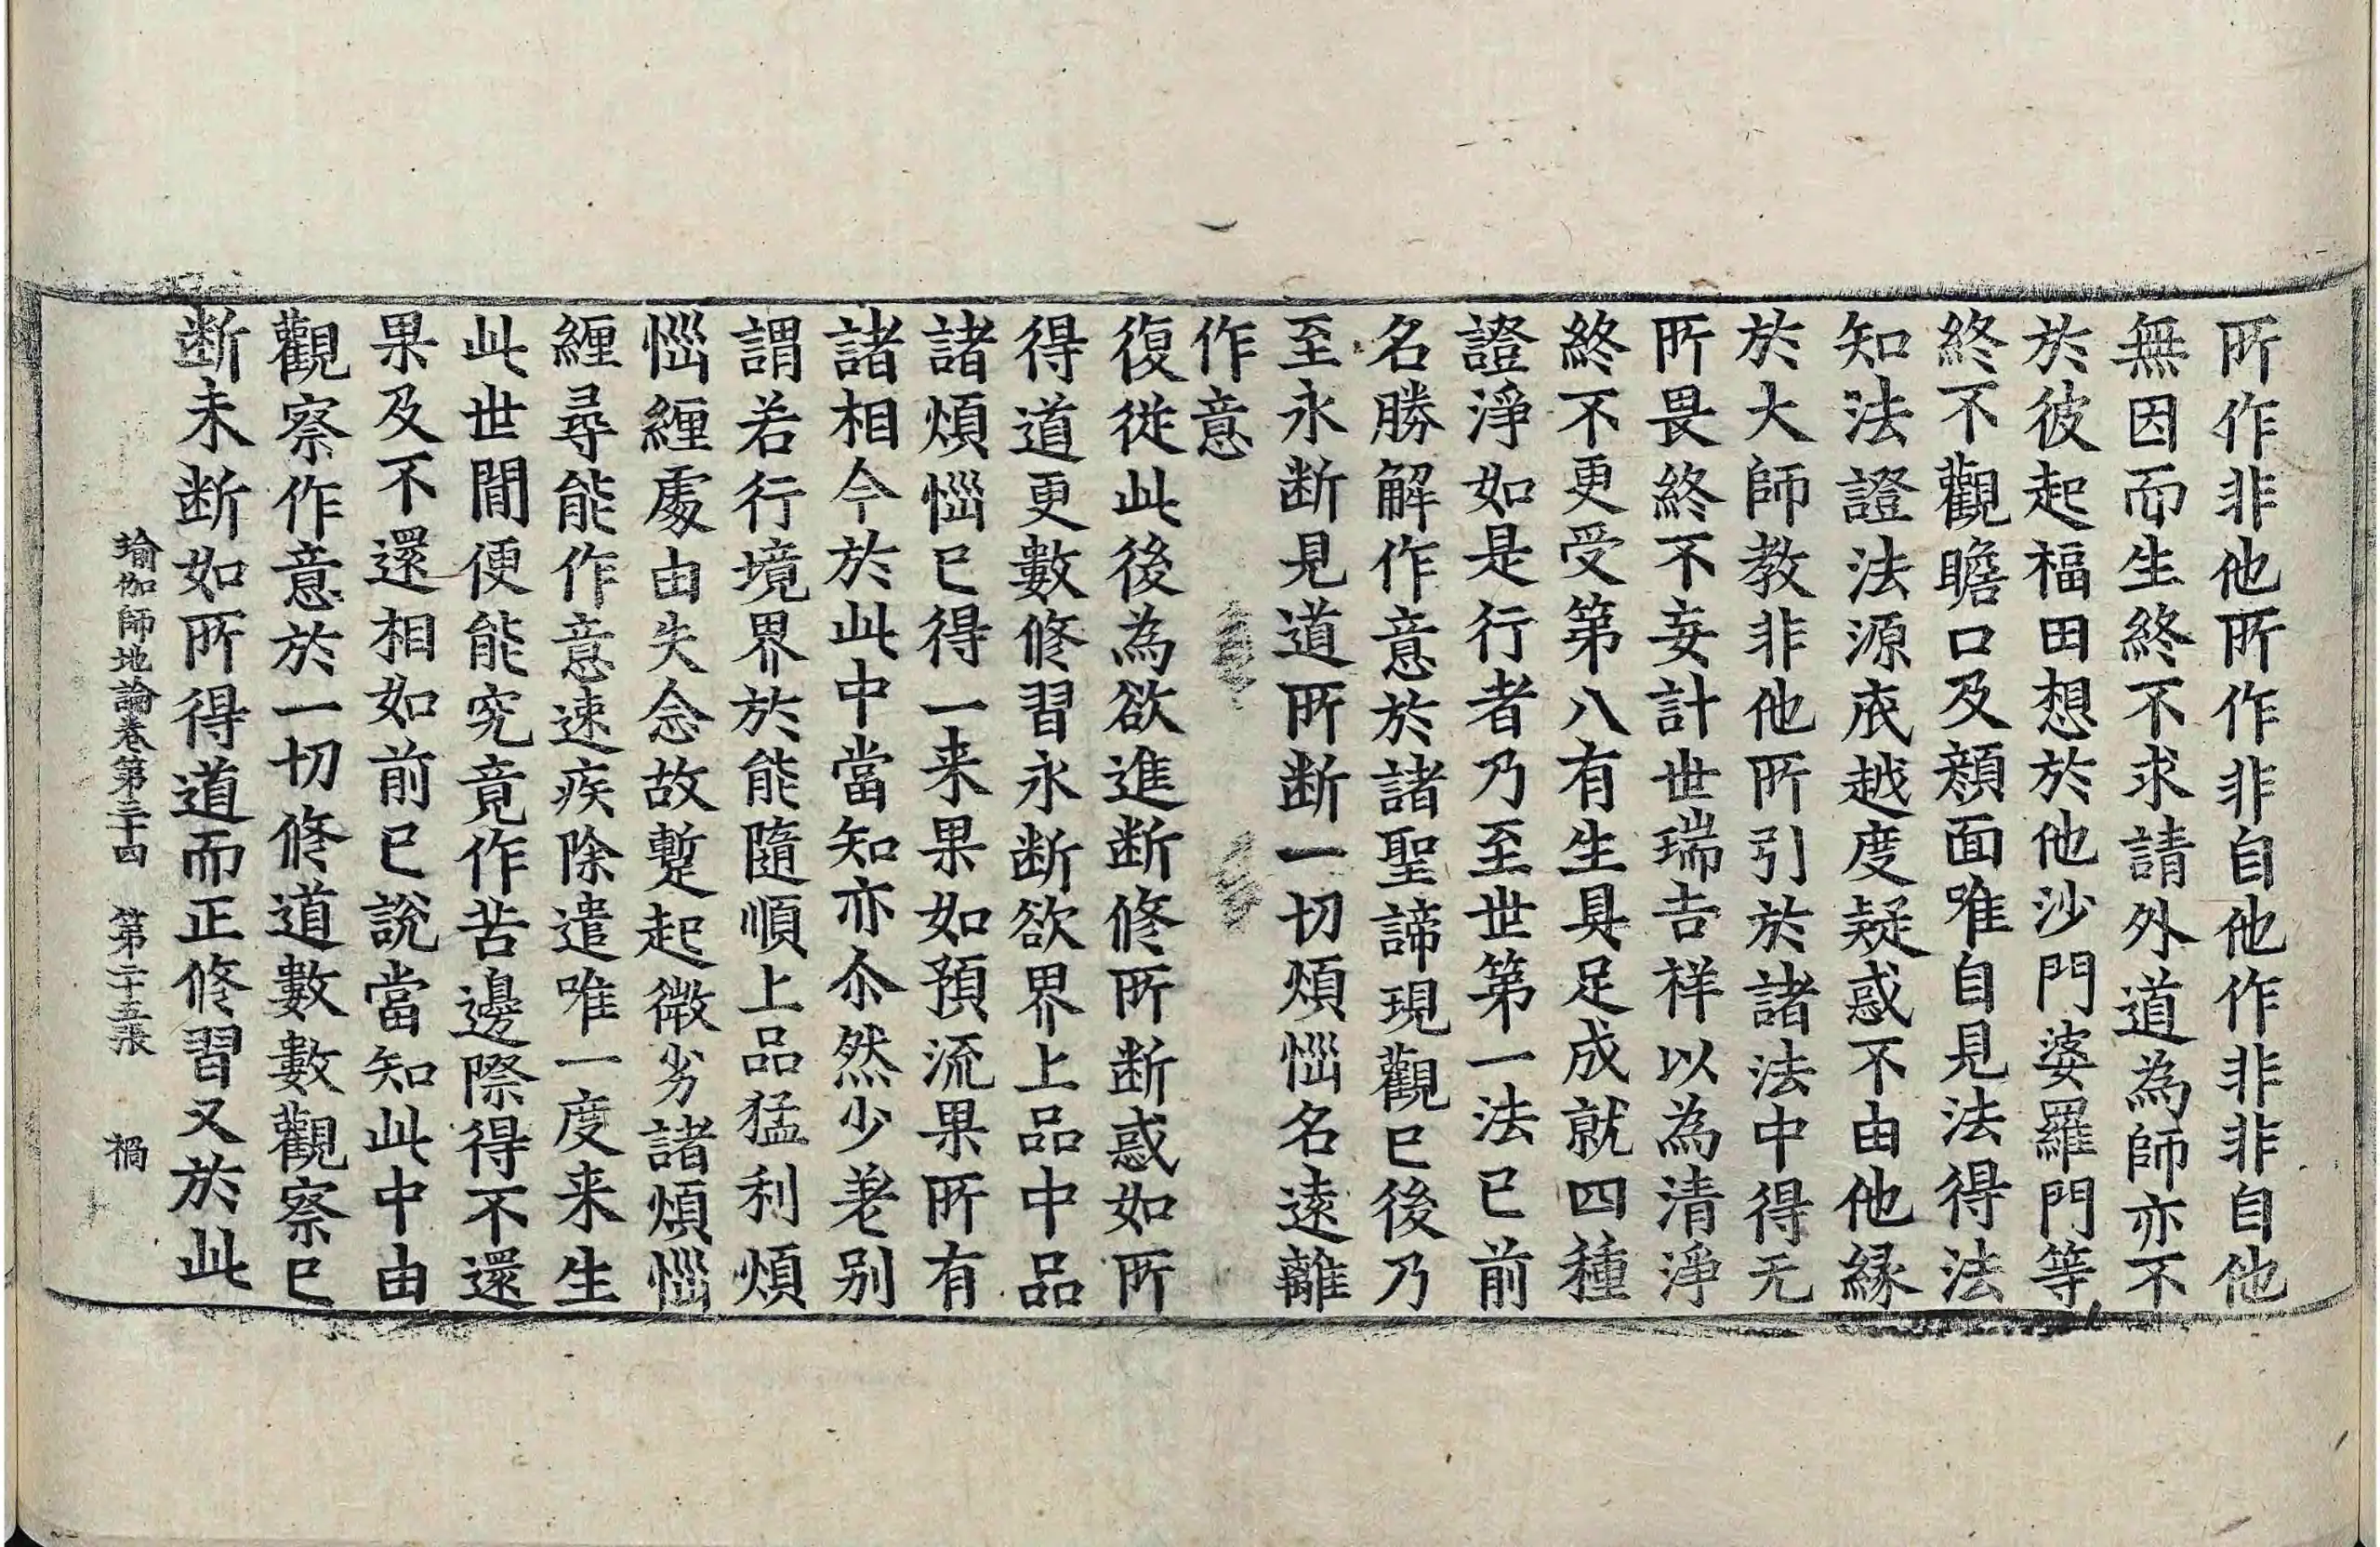 所作非他所作非自他作非非自他
無因而生終不求請外道為師亦不
於彼起福田想於他沙門婆羅門等
終不觀瞻口及顏面唯自見法得法
知法證法源底越度疑惑不由他縁
於大師教非他所引於諸法中得无
所畏終不妄計世瑞吉祥以為清淨
終不更受第八有生具足成就四種
證淨如是行者乃至世第一法已前
名勝解作意於諸聖諦現觀已後乃
至永断見道所断一切煩惱名遠離
作意
復從此後為欲進断修所断惑如所
得道更數修習永断欲界上品中品
諸煩惱已得一来果如預流果所有
諸相今於此中當知亦尒然少差别
謂若行境界於能隨順上品猛利煩
惱纒處由失念故暫起微劣諸煩惱
纒尋能作意速疾除遣唯一度来生
此世間便能究竟作苦邊際得不還
果及不還相如前已說當知此中由
觀察作意於一切修道數數觀察已
断未断如所得道而正修習又於此
瑜伽師地論卷第三十四 第二十五張 禍